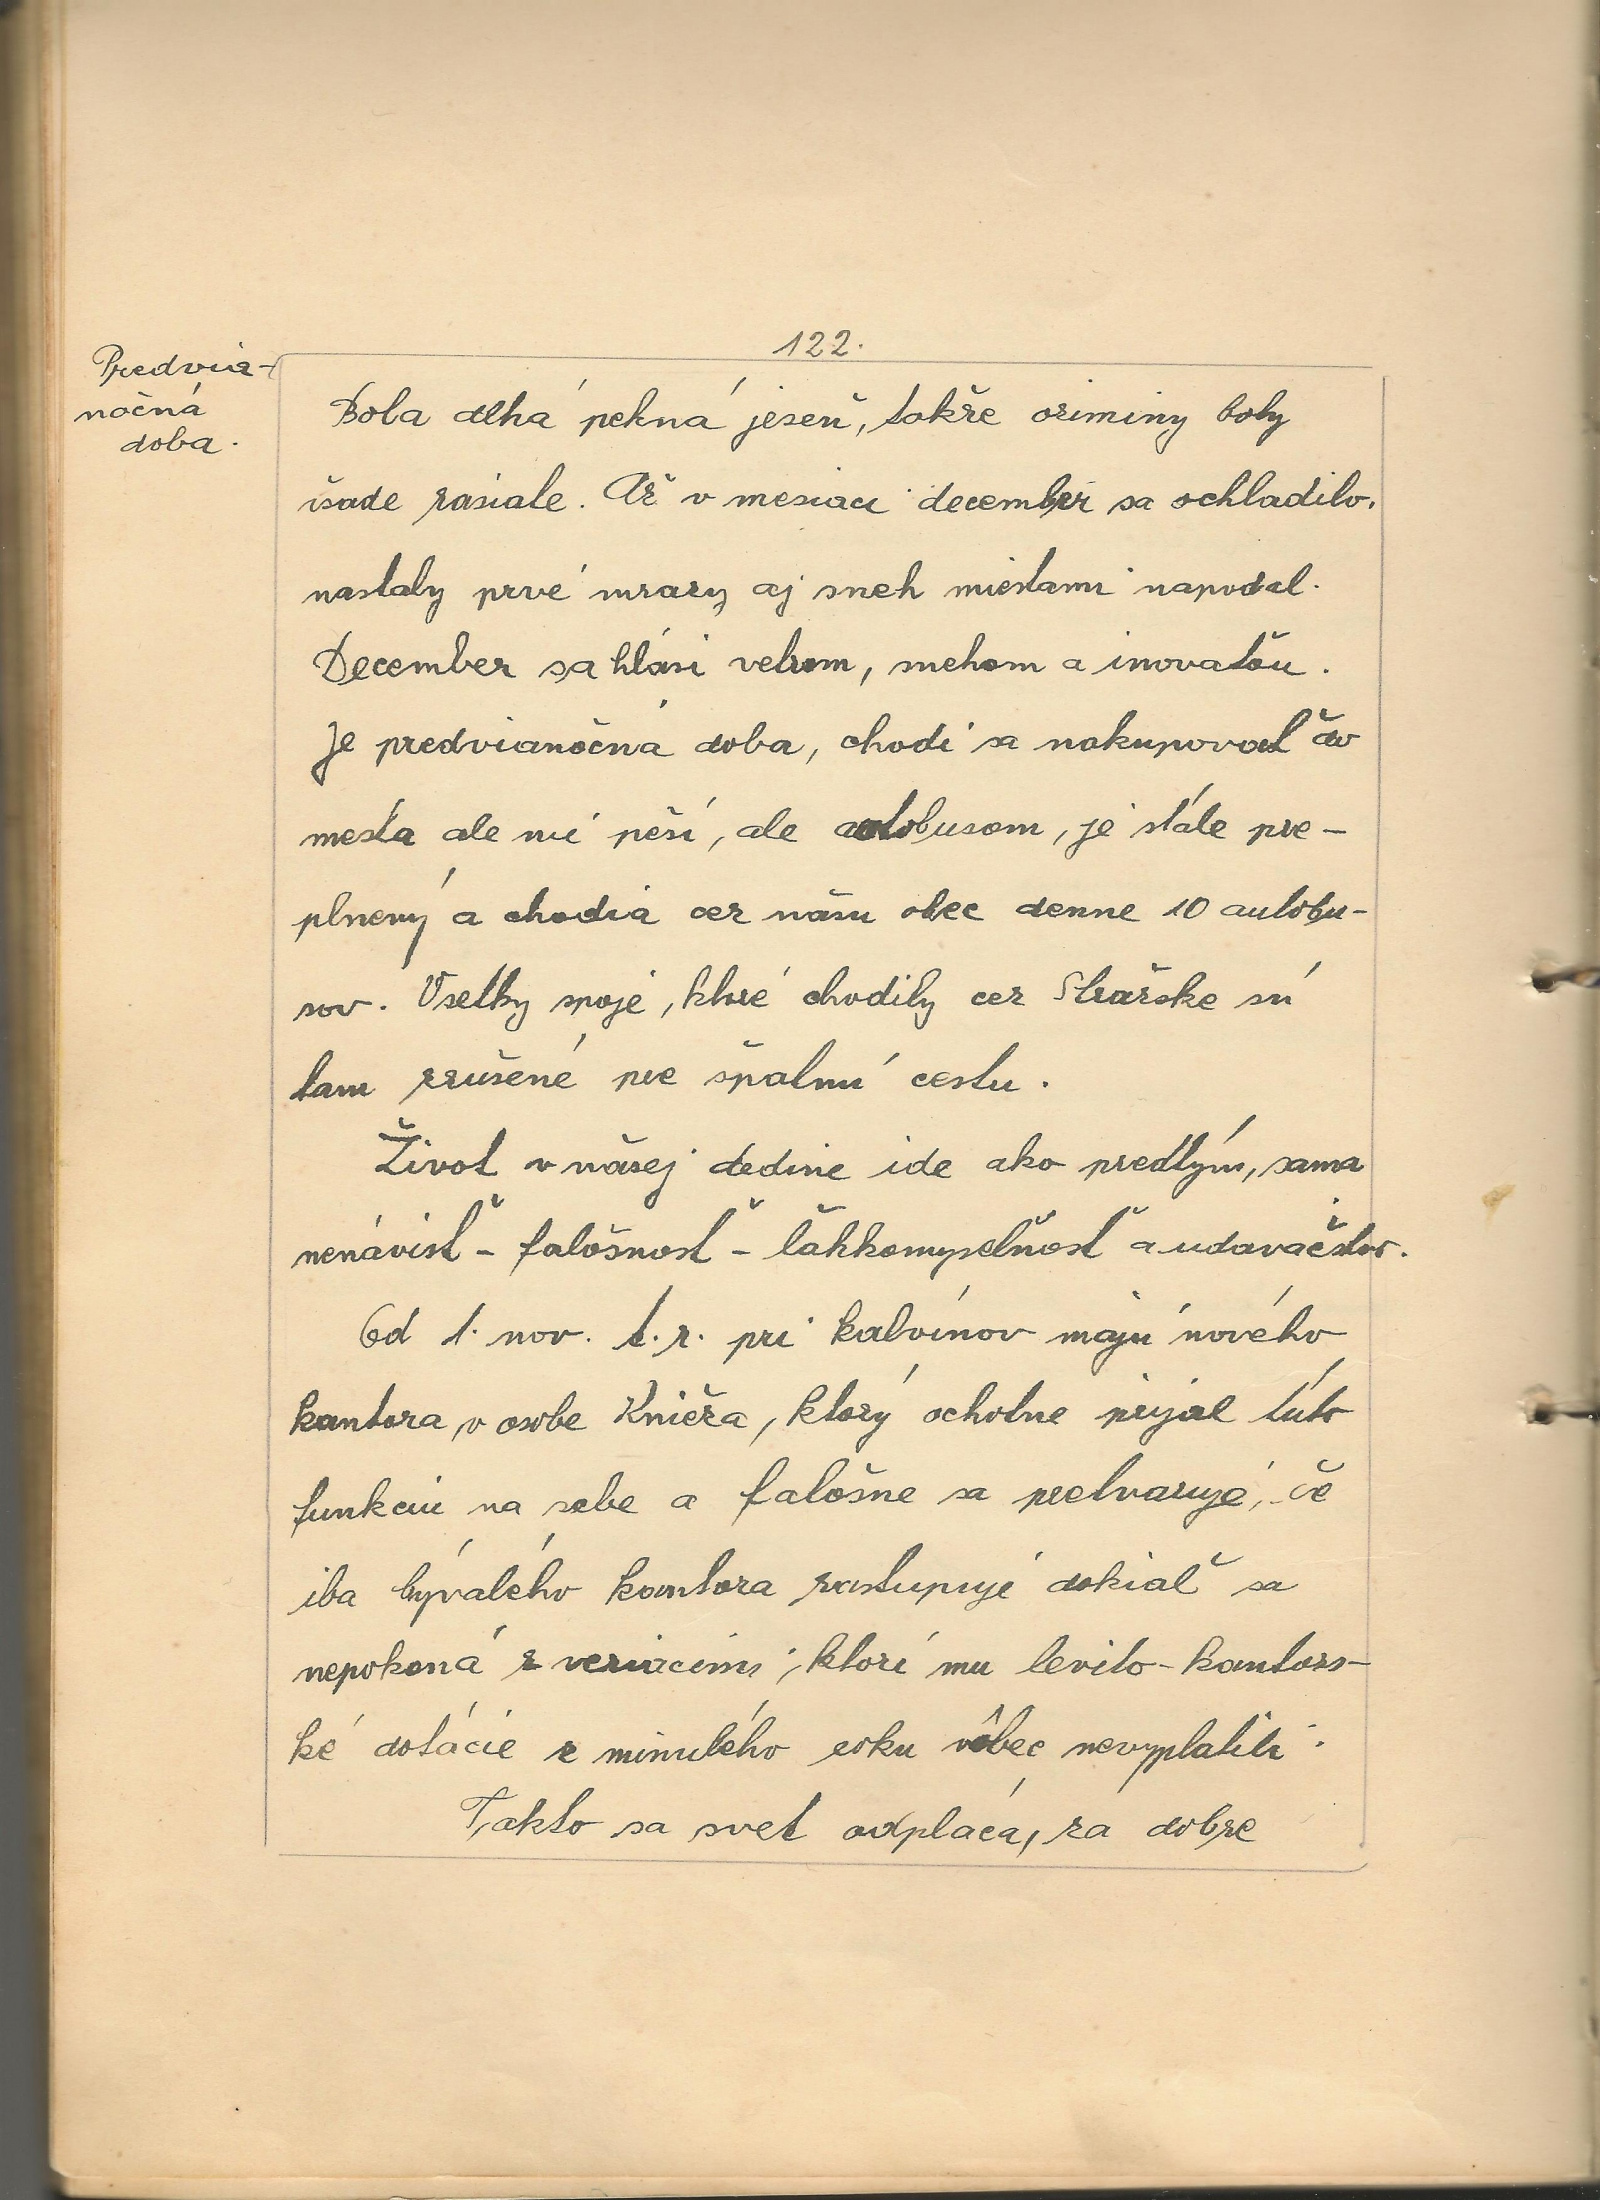 122.
Predvia-
nočná
doba.
Bola dlhá pekná jeseň, takže oziminy boly
všade zasiate. Až v mesiaci december sa ochladilo,
nastaly prvé mrazy aj sneh miestami napadal.
December sa hlási vetrom, snehom a inovaťou.
Je predvianočná doba, chodí sa nakupovať do
mesta ale nie peší, ale autobusom, je stále pre-
plnený a chodia cez našu obec denne 10 autobu-
sov. Všetky spoje, ktoré chodily cez Strážske sú
tam zrušené pre špatnú cestu.
Život v našej dedine ide ako predtým, sama
nenávisť - falošnosť - ľahkomyseľnosť a udavačstvo.
Od 1. nov. t.r. pri kalvínov majú nového
kantora, v osobe Knieža, ktorý ochotne prijal túto
funkciu na sebe a falošne sa pretvaruje, že
iba bývalého kantora zastupuje dokiaľ sa
nepokoná z veriacimi, ktorí mu levito-kantors-
ké dotácie z minulého roku vôbec nevyplatili.
Takto sa svet odpláca, za dobre